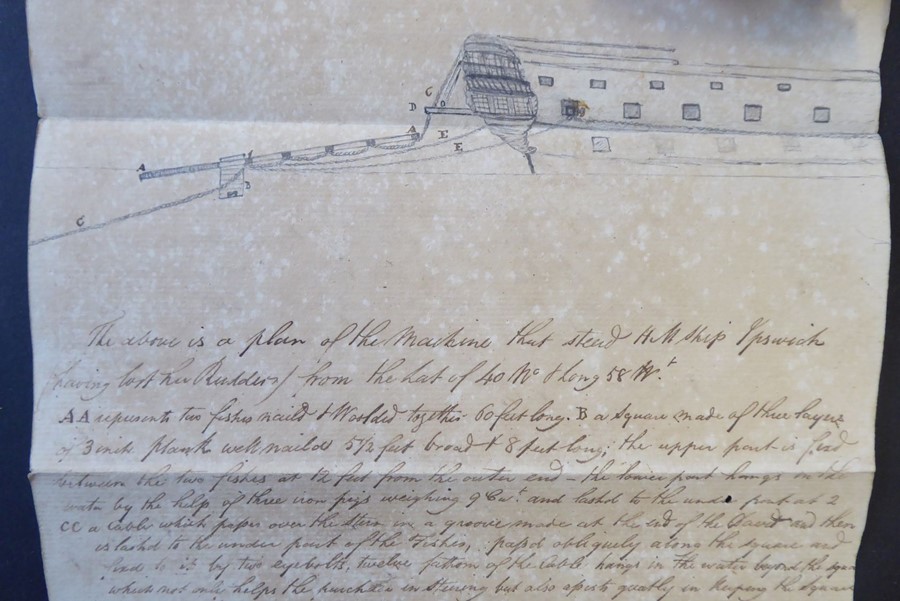 C
D
A
E
E
A
B
C
The above is a plan of the Machine that steard H M Ship Ipswich
(having lost her Rudder) from the Lat of 40 No & Long 58 Wt.
AA represents two fishes naild & Woolded together 60 feet long. B a square made of three layers
of 3 inch plank well naild 5 1/2 feet broad & 8 feet long; the upper part is fixd
between the two fishes at 12 feet from the outer end - the lower part hangs in the
water by the help of three iron pigs weighing 9 Cwt and lashd to the under part at 2
CC a Cable which passes over the Stern in a groove made at the end of the Davit and then
is lashd to the under part of the Fishes, passd obliquely along the square and
to it by two eyebolts, twelve fathom of the Cable hangs in the water beyond the square
which not only helps the purchase in steering but also assists greatly in keeping the Square